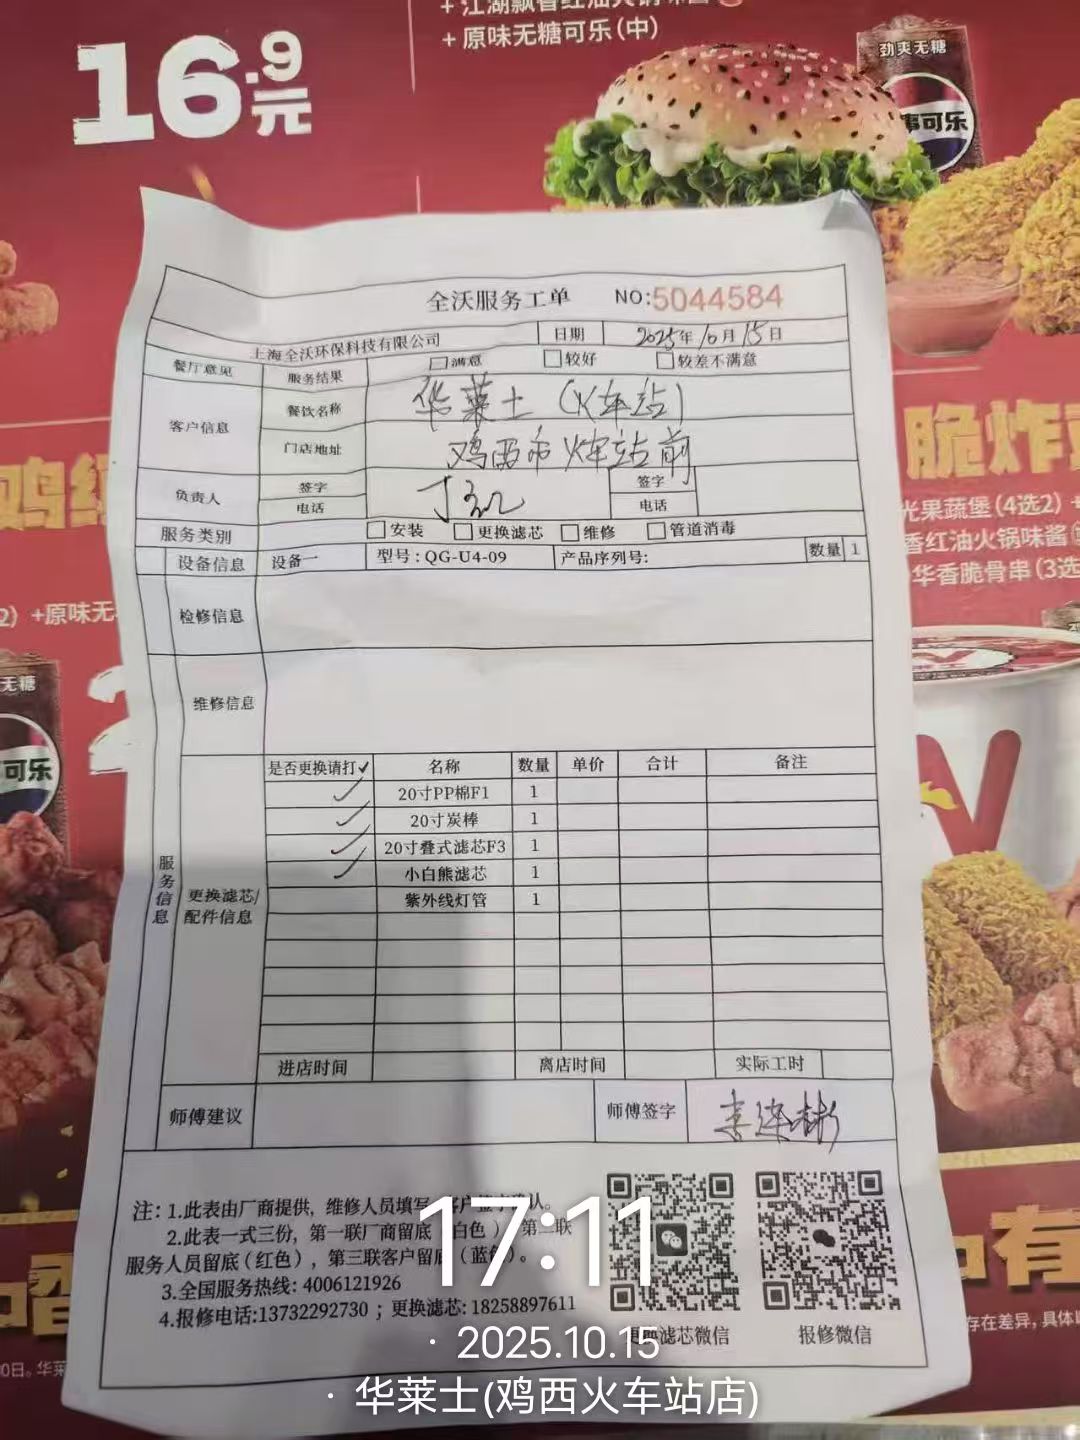 16.9元
+ 原味无糖可乐(中)
劲爽无糖
事可乐
全沃服务工单 NO:5044584
上海全沃环保科技有限公司 日期 2025年10月15日
餐厅意见 服务结果 满意 较好 较差不满意
客户信息 餐饮名称 华莱士(火车站)
门店地址 鸡西市火车站前
负责人 签字 签字
电话 电话
服务类别 安装 更换滤芯 维修 管道消毒
设备信息 设备一 型号: QG-U4-09 产品序列号: 数量 1
检修信息
维修信息
服务信息
更换滤芯/配件信息
是否更换请打✓ 名称 数量 单价 合计 备注
✓ 20寸PP棉F1 1
✓ 20寸炭棒 1
✓ 20寸叠式滤芯F3 1
✓ 小白熊滤芯 1
紫外线灯管 1
进店时间 离店时间 实际工时
师傅建议 师傅签字 李连彬
注: 1.此表由厂商提供, 维修人员填写,客户签字确认。
2.此表一式三份, 第一联厂商留底(白色) 第二联
服务人员留底(红色), 第三联客户留底(蓝色)。
3.全国服务热线: 4006121926
4.报修电话:13732292730 ; 更换滤芯: 18258897611
更换滤芯微信 报修微信
17:11
· 2025.10.15
· 华莱士(鸡西火车站店)
脆炸
光果蔬堡(4选2)+
香红油火锅味酱
华香脆骨串(3选
2) +原味无
无糖
可乐
有
存在差异, 具体
0日。华莱